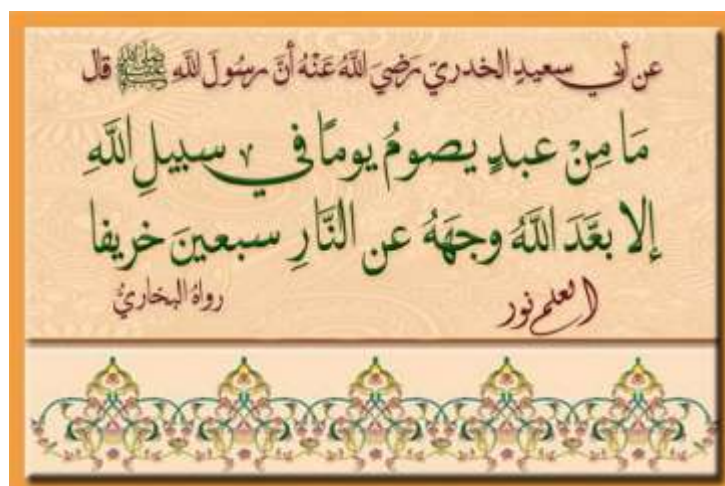 عن أبي سعيدٍ الخدريّ رضيَ اللَّهُ عَنْهُ أنَّ رسُولَ للَّهِ ﷺ قال
مَا مِنْ عبدٍ يصومُ يومًا في سبيلِ اللَّهِ
إلا بعَّدَ اللَّهُ وجهَهُ عن النَّارِ سبعينَ خريفا
العلم نور
رواهُ البخاريُّ